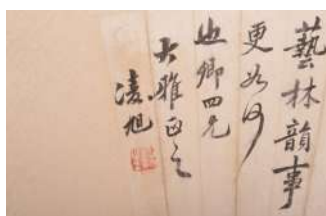 藝林韻事
更如何
四兄
大雅正之
凌旭